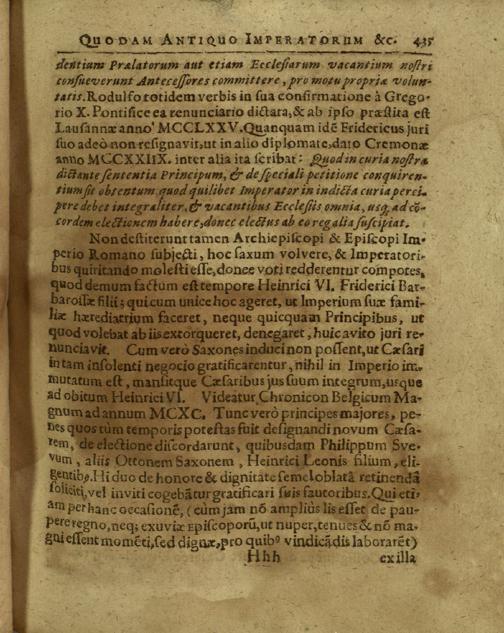 QUODAM ANTIQUO IMPERATORUM &c. 435
dentium Prælatorum aut etiam Ecclesiarum vacantium nostri
consueverunt Antecessores committere, pro motu propriæ volun-
tatis. Rodulfo totidem verbis in sua confirmatione à Grego-
rio X. Pontifice ea renunciatio dictata, & ab ipso præstita est
Lausannæ anno MCCLXXV. Quanquam idē Fridericus juri
suo adeò non resignavit, ut in alio diplomate, dato Cremonæ
anno MCCXXIIX. inter alia ita scribat: Quod in curia nostra
dictante sententia Principum, & de speciali petitione conquiren-
tium sit obtentum quod quilibet Imperator in indicta curia perci-
pere debet integraliter, & vacantibus Ecclesiis omnia, usq; ad cō-
cordem electionem habere, donec electus ab eo regalia suscipiat.
Non destiterunt tamen Archiepiscopi & Episcopi Im-
perio Romano subjecti, hoc saxum volvere, & Imperatori-
bus quiritando molesti esse, donec voti redderentur compotes,
quod demum factum est tempore Heinrici VI. Friderici Bar-
barossæ filii; qui cum unice hoc ageret, ut Imperium suæ fami-
liæ hærediatrium faceret, neque quicquam Principibus, ut
quod volebat ab iis extorqueret, denegaret, huic avito juri re-
nunciavit. Cum verò Saxones induci non possent, ut Cæsari
in tam insolenti negocio gratificarentur, nihil in Imperio im-
mutatum est, mansitque Cæsaribus jus suum integrum, usque
ad obitum Heinrici VI. Videatur Chronicon Belgicum Ma-
gnum ad annum MCXC. Tunc verò principes majores, pe-
nes quos tùm temporis potestas fuit designandi novum Cæsa-
rem, de electione discordarunt, quibusdam Philippum Sve-
vum, aliis Ottonem Saxonem, Heinrici Leonis filium, eli-
gentibꝰ. Hi duo de honore & dignitate semel oblatâ retinendâ
soliciti, vel inviti cogebātur gratificari suis fautoribus. Qui eti-
am per hanc occasionē, (cum jam nō amplius lis esset de pau-
pere regno, neq; exuviæ Episcoporū, ut nuper, tenues & nō ma-
gni essent momēti, sed dignæ, pro quibꝰ vindicādis laborarēt)
Hhh ex illa